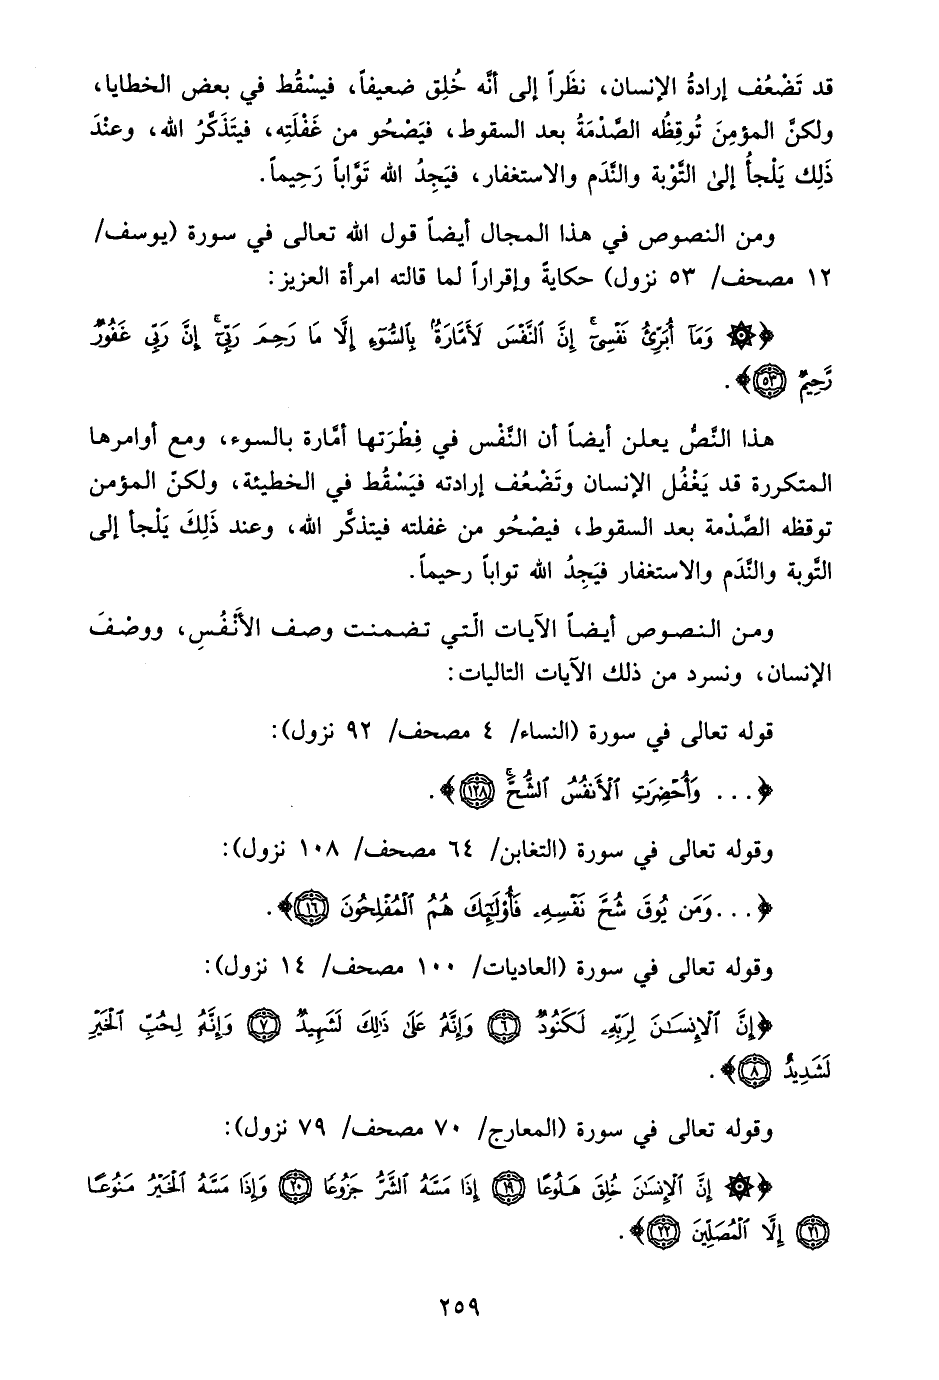 قد تَضْعُف إرادةُ الإنسان، نظَراً إلى أنَّه خُلِق ضعيفاً، فيسْقُط في بعض الخطايا،
ولكنَّ المؤمِنَ تُوقِظُه الصَّدْمَةُ بعد السقوط، فيَصْحُو من غَفْلَتِه، فيتَذَكَّرُ الله، وعنْدَ
ذَلِك يَلْجأُ إلىٰ التَّوْبة والنَّدَم والاستغفار، فيَجِدُ الله تَوَّاباً رَحِيماً.
ومن النصوص في هذا المجال أيضاً قول الله تعالى في سورة (يوسف/
١٢ مصحف/ ٥٣ نزول) حكايةً وإقراراً لما قالته امرأة العزيز:
﴿۞ وَمَآ أُبَرِّئُ نَفْسِيٓۚ إِنَّ ٱلنَّفْسَ لَأَمَّارَةُۢ بِٱلسُّوٓءِ إِلَّا مَا رَحِمَ رَبِّيٓۚ إِنَّ رَبِّي غَفُورٞ
رَّحِيمٞ ٥٣﴾.
هذا النَّصُّ يعلن أيضاً أن النَّفْس في فِطْرَتها أمَّارة بالسوء، ومع أوامرها
المتكررة قد يَغْفُل الإنسان وتَضْعُف إرادته فيَسْقُط في الخطيئة، ولكنّ المؤمن
توقظه الصَّدْمة بعد السقوط، فيصْحُو من غفلته فيتذكَّر الله، وعند ذَلِكَ يَلْجأ إلى
التَّوبة والنَّدَم والاستغفار فيَجِدُ الله تواباً رحيماً.
ومن النصوص أيضاً الآيات الّتي تضمنت وصف الأَنْفُسِ، ووصْفَ
الإنسان، ونسرد من ذلك الآيات التاليات:
قوله تعالى في سورة (النساء/ ٤ مصحف/ ٩٢ نزول):
﴿... وَأُحْضِرَتِ ٱلْأَنفُسُ ٱلشُّحَّۚ ١٢٨﴾.
وقوله تعالى في سورة (التغابن/ ٦٤ مصحف/ ١٠٨ نزول):
﴿...وَمَن يُوقَ شُحَّ نَفْسِهِۦ فَأُوْلَٰٓئِكَ هُمُ ٱلْمُفْلِحُونَ ١٦﴾.
وقوله تعالى في سورة (العاديات/ ١٠٠ مصحف/ ١٤ نزول):
﴿إِنَّ ٱلْإِنسَٰنَ لِرَبِّهِۦ لَكَنُودٞ ٦ وَإِنَّهُۥ عَلَىٰ ذَٰلِكَ لَشَهِيدٞ ٧ وَإِنَّهُۥ لِحُبِّ ٱلْخَيْرِ
لَشَدِيدٌ ٨﴾.
وقوله تعالى في سورة (المعارج/ ٧٠ مصحف/ ٧٩ نزول):
﴿۞ إِنَّ ٱلْإِنسَٰنَ خُلِقَ هَلُوعًا ١٩ إِذَا مَسَّهُ ٱلشَّرُّ جَزُوعًا ٢٠ وَإِذَا مَسَّهُ ٱلْخَيْرُ مَنُوعًا
٢١ إِلَّا ٱلْمُصَلِّينَ ٢٢﴾.
٢٥٩